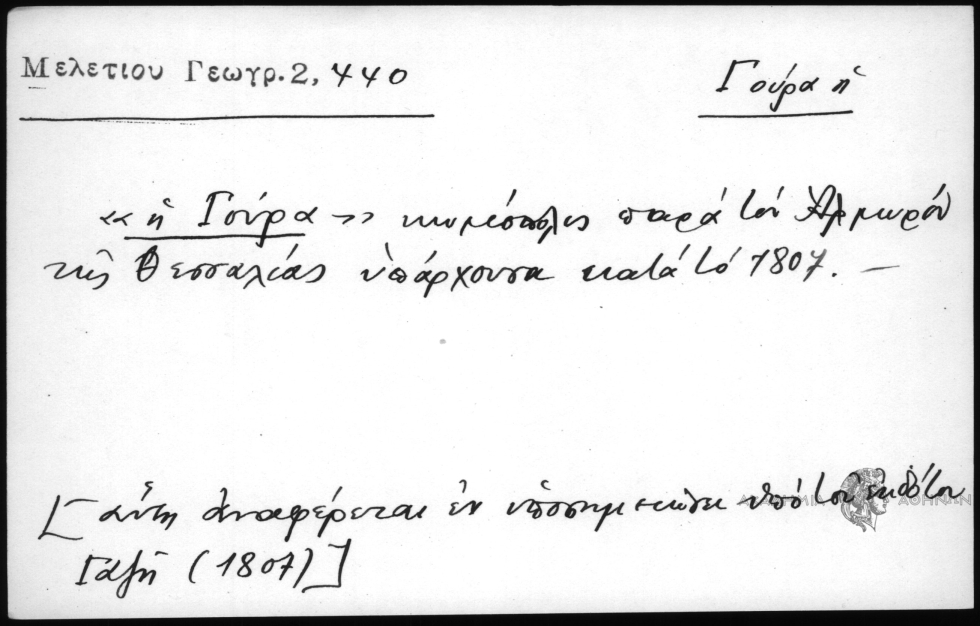 Μελετιου Γεωγρ. 2, 440
Γούρα ἡ
« ἡ Γούρα » κωμόπολις παρά τόν Ἁλμυρόν
τῆς Θεσσαλίας ὑπάρχουσα κατά τό 1807. —
[ αὕτη ἀναφέρεται ἐν ὑποσημειώσει ὑπό τοῦ ἐκδότου
Γαζῆ (1807)]
ΑΚΑΔΗΜΙΑ ΑΘΗΝΩΝ